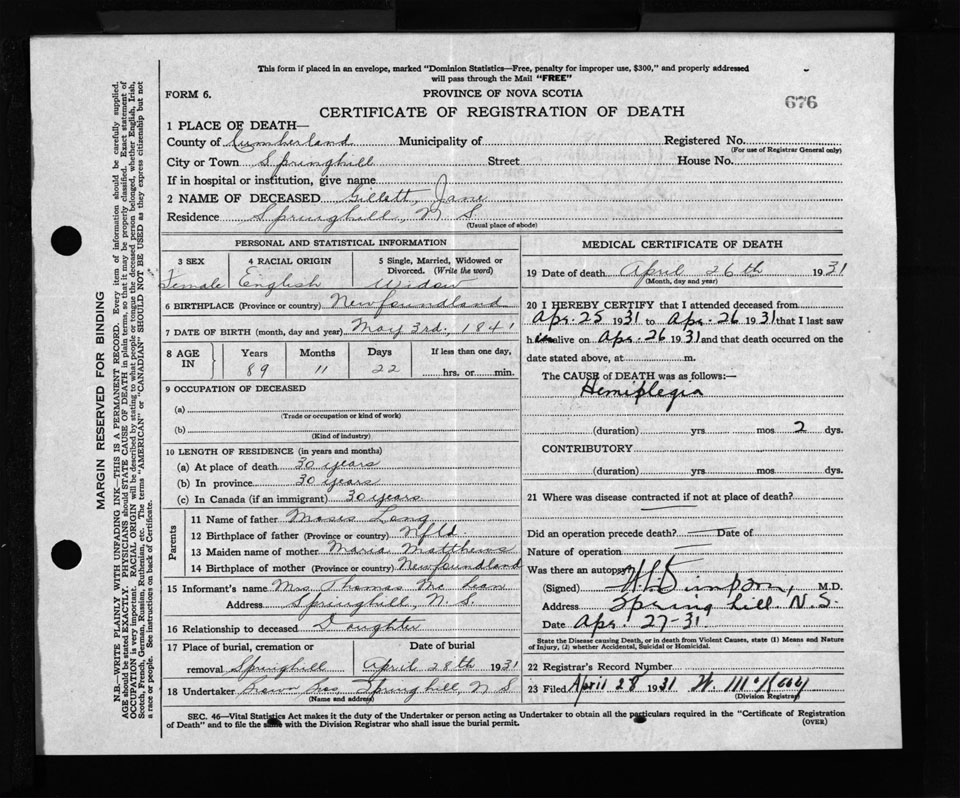 This form if placed in an envelope, marked "Dominion Statistics—Free, penalty for improper use, $300," and properly addressed
will pass through the Mail "FREE"
FORM 6.
PROVINCE OF NOVA SCOTIA
676
CERTIFICATE OF REGISTRATION OF DEATH
1 PLACE OF DEATH—
County of Cumberland Municipality of Registered No.
(For use of Registrar General only)
City or Town Springhill Street House No.
If in hospital or institution, give name
2 NAME OF DECEASED Gillett, Jane
Residence Springhill, N S
(Usual place of abode)
PERSONAL AND STATISTICAL INFORMATION
3 SEX 4 RACIAL ORIGIN 5 Single, Married, Widowed or
Divorced. (Write the word)
Female English Widow
6 BIRTHPLACE (Province or country) Newfoundland
7 DATE OF BIRTH (month, day and year) May 3rd, 1841
8 AGE IN Years Months Days If less than one day,
89 11 22 hrs. or min.
9 OCCUPATION OF DECEASED
(a)
(Trade or occupation or kind of work)
(b)
(Kind of industry)
10 LENGTH OF RESIDENCE (in years and months)
(a) At place of death 30 years
(b) In province 30 years
(c) In Canada (if an immigrant) 30 years
Parents
11 Name of father Moses Lang
12 Birthplace of father (Province or country) Nfld.
13 Maiden name of mother Maria Matthews
14 Birthplace of mother (Province or country) Newfoundland
15 Informant's name Mrs Thomas McLean
Address Springhill, N. S.
16 Relationship to deceased Daughter
17 Place of burial, cremation or Date of burial
removal Springhill April 28th 1931
18 Undertaker Bros, Springhill, N S
(Name and address)
MEDICAL CERTIFICATE OF DEATH
19 Date of death April 26th 1931
(Month, day and year)
20 I HEREBY CERTIFY that I attended deceased from
Apr. 25 1931 to Apr. 26 1931 that I last saw
her alive on Apr. 26 1931 and that death occurred on the
date stated above, at m.
The CAUSE of DEATH was as follows:—
Hemiplegia
(duration) yrs mos 2 dys.
CONTRIBUTORY
(duration) yrs. mos. dys.
21 Where was disease contracted if not at place of death?
Did an operation precede death? Date of
Nature of operation
Was there an autopsy
(Signed) Simpson, M.D.
Address Spring hill. N. S.
Date Apr. 27-31
State the Disease causing Death, or in death from Violent Causes, state (1) Means and Nature
of Injury, (2) whether Accidental, Suicidal or Homicidal.
22 Registrar's Record Number
23 Filed April 28 1931 W. McKay
(Division Registrar)
SEC. 46—Vital Statistics Act makes it the duty of the Undertaker or person acting as Undertaker to obtain all the particulars required in the "Certificate of Registration
of Death" and to file the same with the Division Registrar who shall issue the burial permit. (OVER)
MARGIN RESERVED FOR BINDING
N.B.—WRITE PLAINLY WITH UNFADING INK—THIS IS A PERMANENT RECORD. Every item of information should be carefully supplied.
AGE should be stated EXACTLY. PHYSICIANS should STATE CAUSE OF DEATH in plain terms, so that it may be properly classified. Exact statement of
OCCUPATION is very important. RACIAL ORIGIN will be described by stating to what people or tongue the deceased person belonged, whether English, Irish,
Scotch, French, German, Russian, Ruthenian, etc. The terms "AMERICAN" or "CANADIAN" SHOULD NOT BE USED as they express citizenship but not
a race or people. See instructions on back of Certificate.